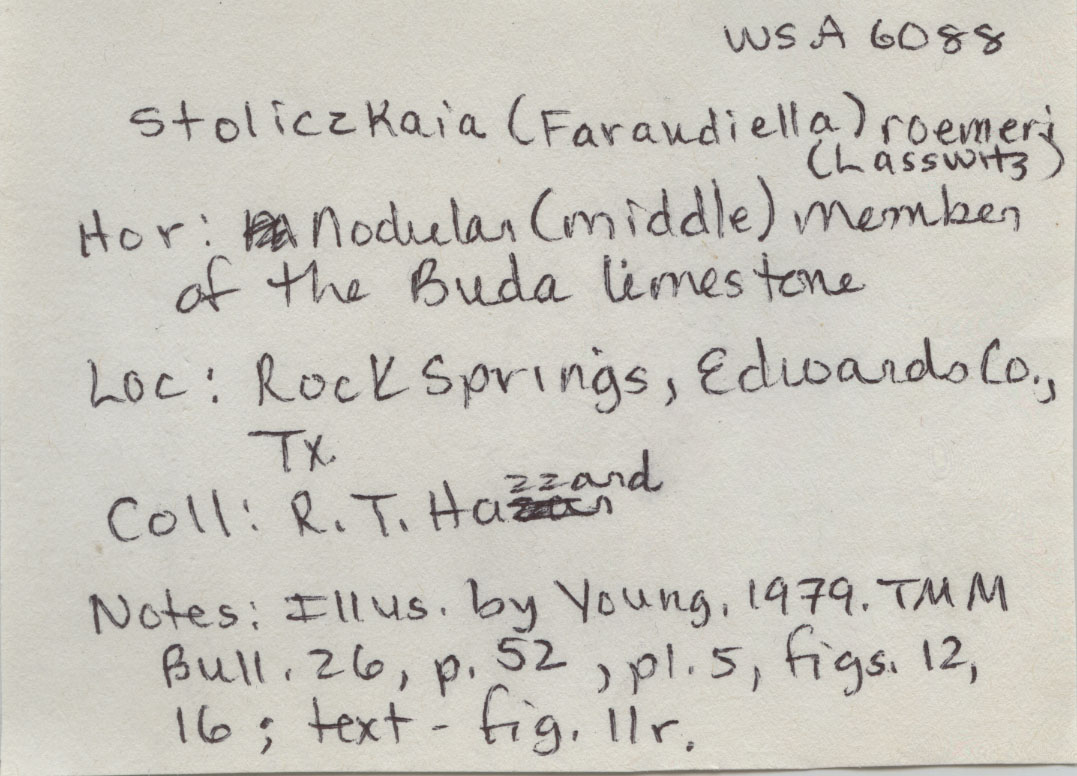 WSA 6088
Stoliczkaia (Faraudiella) roemeri
(Lasswitz)
Hor: Nodular (middle) Member
of the Buda limestone
Loc: Rock Springs, Edwards Co.,
Tx.
Coll: R. T. Hazzard
Notes: Illus. by Young, 1979. TMM
Bull. 26, p. 52, pl. 5, figs. 12,
16; text-fig. 11r.